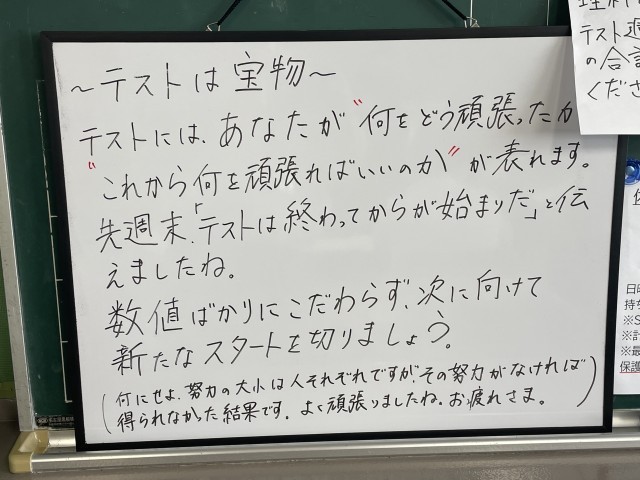 ～テストは宝物～
テストには、あなたが"何をどう頑張ったか
"これから何を頑張ればいいのか"が表れます。
先週末、「テストは終わってからが始まりだ」と伝
えましたね。
数値ばかりにこだわらず、次に向けて
新たなスタートを切りましょう。
(何にせよ、努力の大小は人それぞれですが、その努力がなければ
得られなかった結果です。よく頑張りましたね。お疲れさま。)
テスト週
の合計
くださ
日曜
持ち
※S
※計
※最
保護